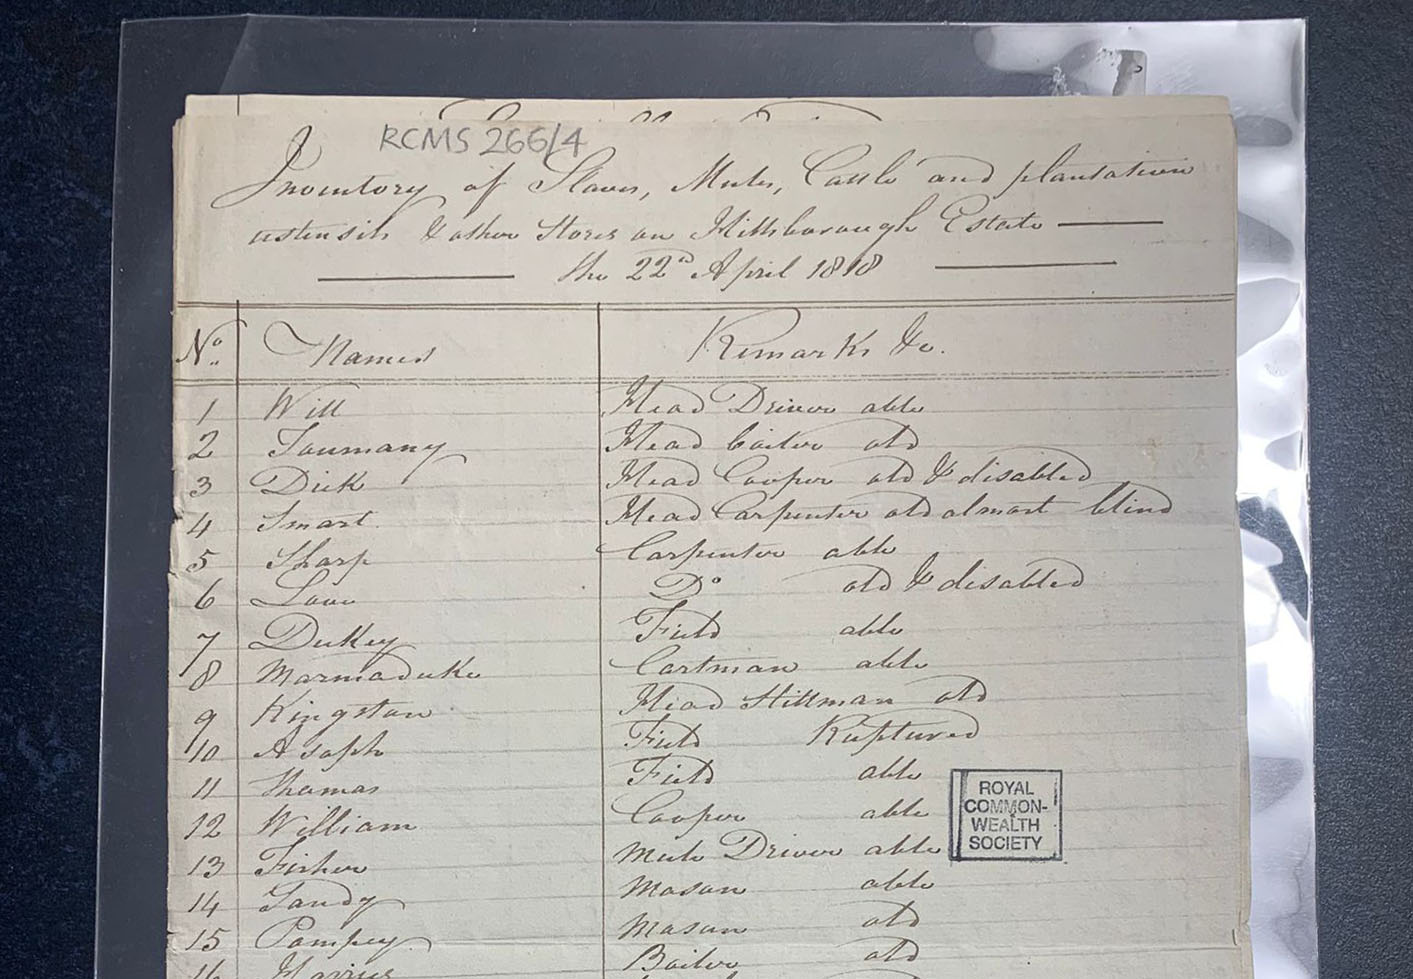 RCMS 266/4
Inventory of Slaves, Mules, Cattle and plantation
ustensils & other Stores on Hillsborough Estate
the 22d April 1818
No. Names Remarks &c.
1 Will Head Driver able
2 Toumany Head boiler old
3 Dick Head Cooper old & disabled
4 Smart Head Carpenter old almost blind
5 Sharp Carpenter able
6 Love Do old & disabled
7 Dukey Field able
8 Marmaduke Cartman able
9 Kingston Head Stillman old
10 Asaph Field Ruptured
11 Thomas Field able
12 William Cooper able
13 Fisher Mule Driver able
14 Sandy Mason able
15 Pompey Mason old
16 Boiler old
ROYAL
COMMON-
WEALTH
SOCIETY